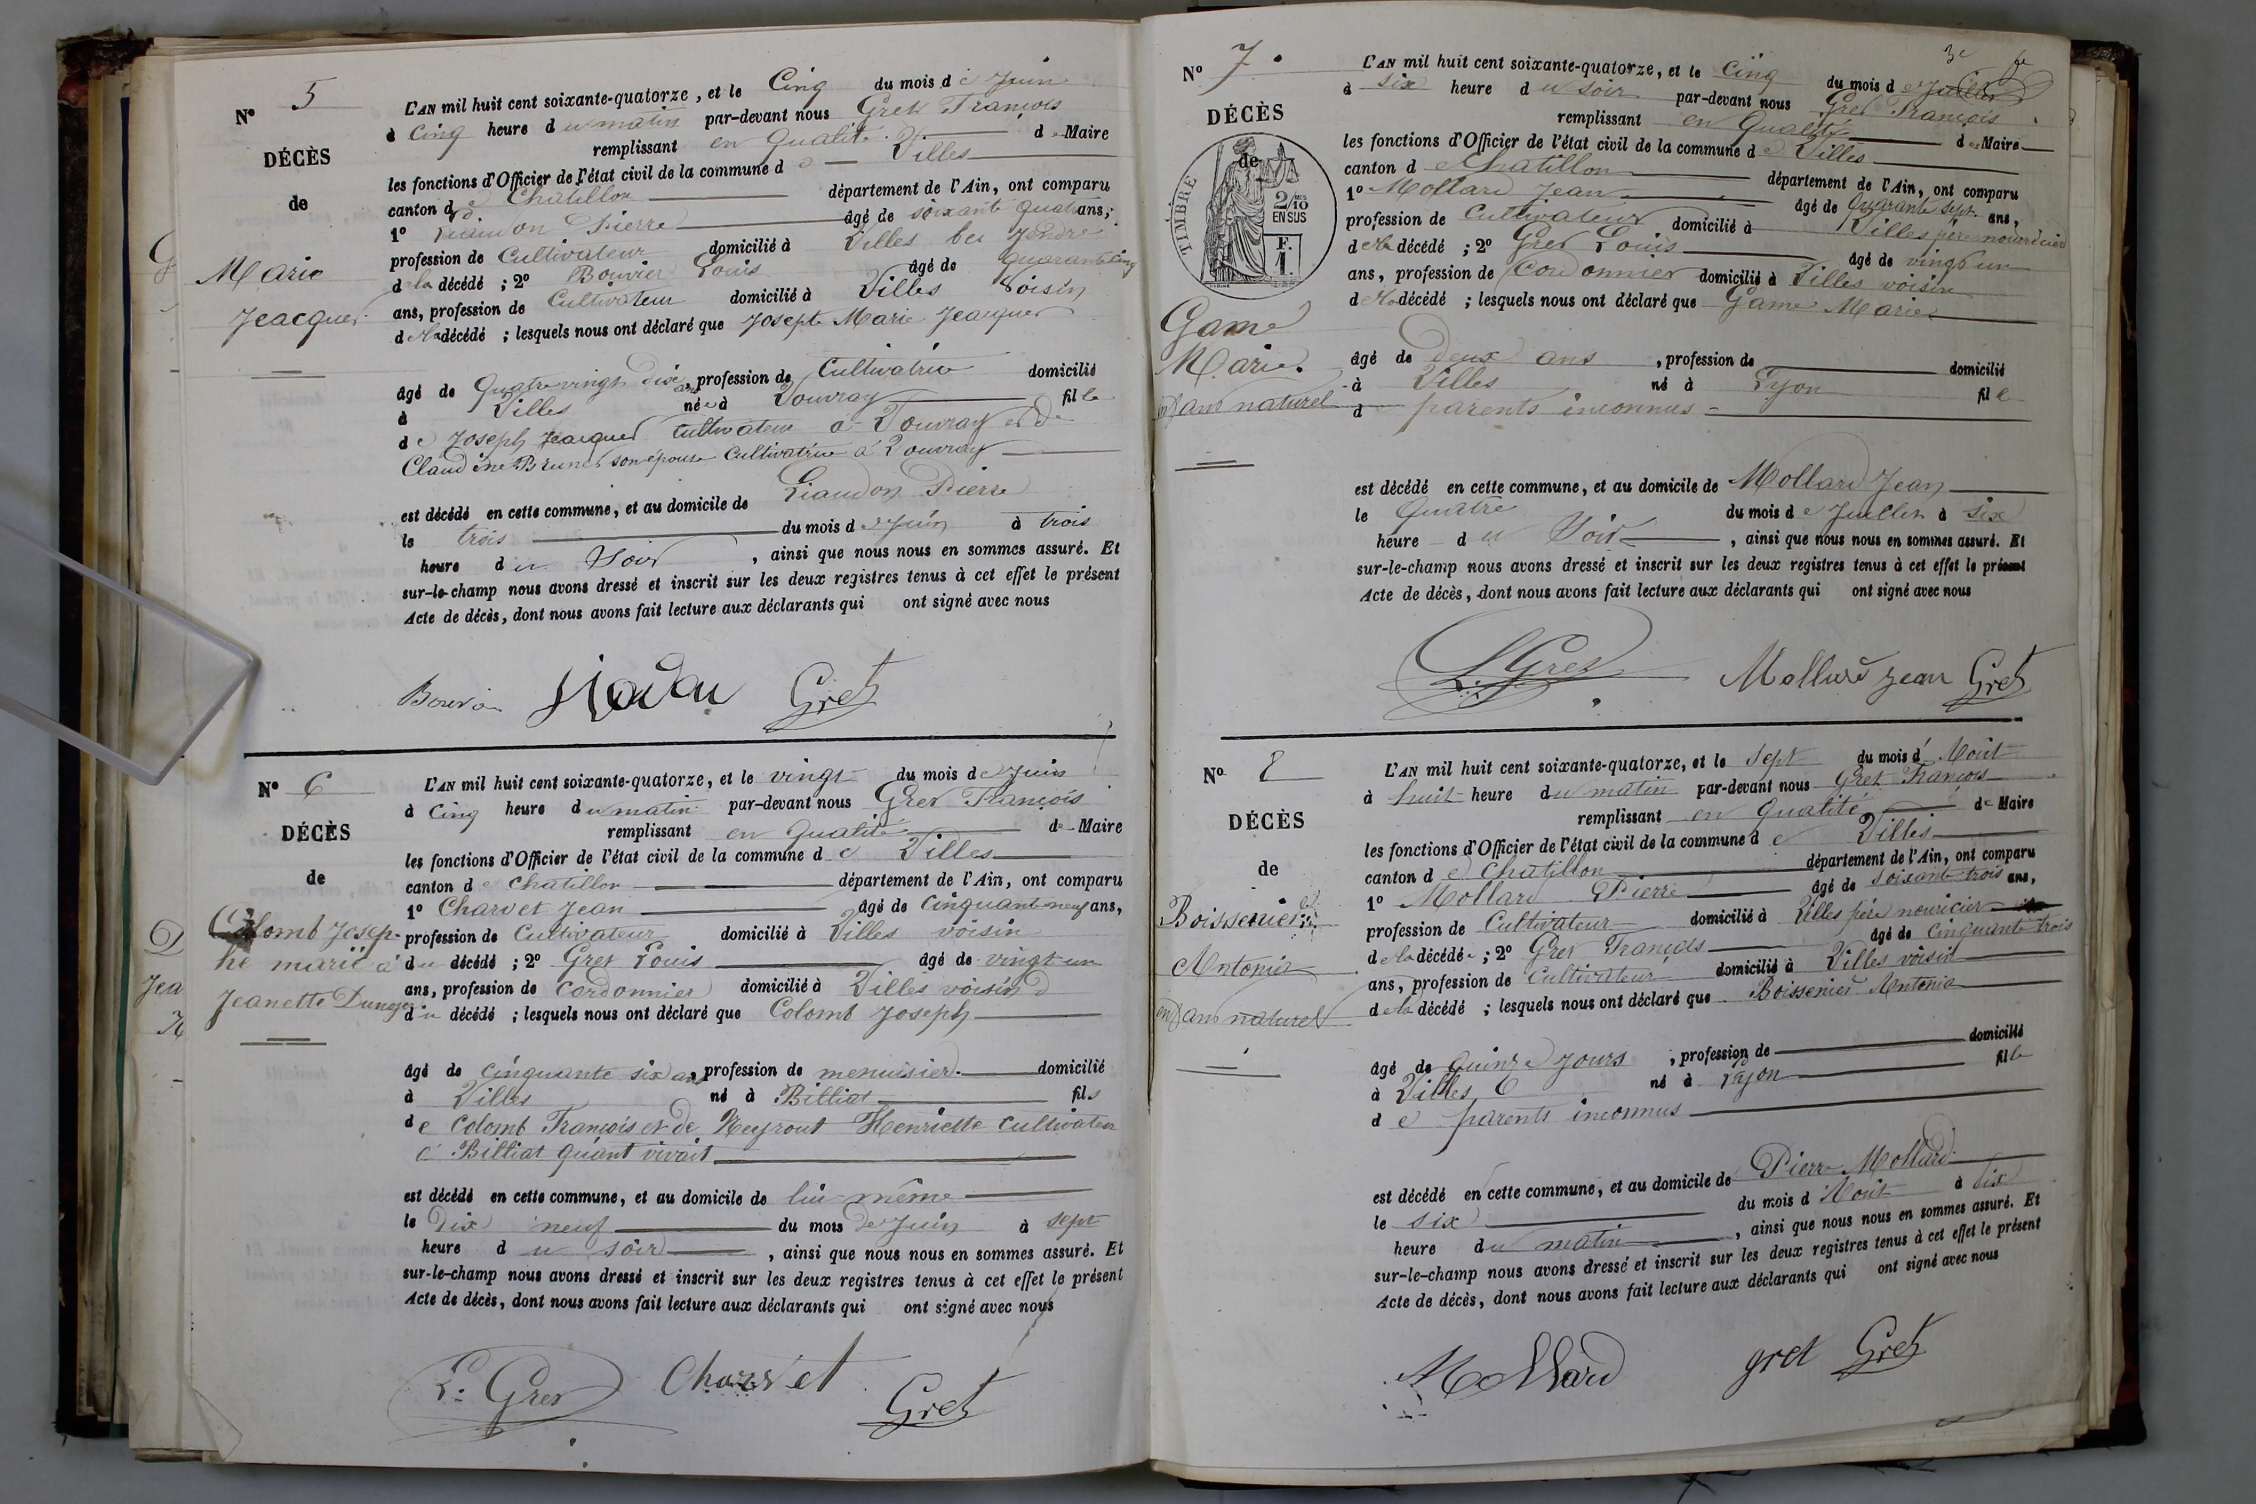 Nº 5
DÉCÈS
de
Marie
Jeacquer
L'AN mil huit cent soixante-quatorze, et le Cinq du mois de Juin
à Cinq heure du matin par-devant nous Gret François
remplissant en Qualité de Maire
les fonctions d'Officier de l'état civil de la commune d Villes
canton de Chatillon département de l'Ain, ont comparu
1º Liaudon Pierre âgé de soixante quatre ans,
profession de Cultivateur domicilié à Villes
de la décédé ; 2º Bouvier Louis âgé de quarante cinq
ans, profession de Cultivateur domicilié à Villes Voisin
de la décédé ; lesquels nous ont déclaré que Josepte Marie Jeacquer
âgé de Quatre vingt dix ans, profession de Cultivatrice domicilié
à Villes née à Vouvray fille
de Joseph Jeacquer Cultivateur à Vouvray et de
Claudine Brunet son épouse Cultivatrice à Vouvray
est décédé en cette commune, et au domicile de Liaudon Pierre
le trois du mois de Juin à trois
heure du Soir, ainsi que nous nous en sommes assuré. Et
sur-le-champ nous avons dressé et inscrit sur les deux registres tenus à cet effet le présent
Acte de décès, dont nous avons fait lecture aux déclarants qui ont signé avec nous
Gret
Nº 6
DÉCÈS
de
Colomb Josep-
he marié à
Jeanette
L'AN mil huit cent soixante-quatorze, et le vingt du mois de Juin
à Cinq heure du matin par-devant nous Gret François
remplissant en Qualité de Maire
les fonctions d'Officier de l'état civil de la commune de Villes
canton de Chatillon département de l'Ain, ont comparu
1º Charvet Jean âgé de Cinquante neuf ans,
profession de Cultivateur domicilié à Villes voisin
du décédé ; 2º Gret Louis âgé de vingt un
ans, profession de Cordonnier domicilié à Villes voisin
du décédé ; lesquels nous ont déclaré que Colomb Joseph
âgé de Cinquante six ans, profession de menuisier domicilié
à Villes né à Billiat fils
de Colomb François et de Neyrout Henriette Cultivateur
à Billiat quant vivait
est décédé en cette commune, et au domicile de lui-même
le Dix neuf du mois de Juin à sept
heure du soir, ainsi que nous nous en sommes assuré. Et
sur-le-champ nous avons dressé et inscrit sur les deux registres tenus à cet effet le présent
Acte de décès, dont nous avons fait lecture aux déclarants qui ont signé avec nous
L. Gret Charvet Gret
3e fe
Nº 7
DÉCÈS
de
TIMBRE
2/10 MES
EN SUS
F.
1.
Game
Marie.
enfant naturel
L'AN mil huit cent soixante-quatorze, et le Cinq du mois de Juillet
à six heure du soir par-devant nous Gret François
remplissant en Qualité de Maire
les fonctions d'Officier de l'état civil de la commune de Villes
canton de Chatillon département de l'Ain, ont comparu
1º Mollard Jean âgé de Quarante sept ans,
profession de Cultivateur domicilié à Villes père nourricier
de la décédé ; 2º Gret Louis âgé de vingt un
ans, profession de Cordonnier domicilié à Villes voisin
de la décédé ; lesquels nous ont déclaré que Game Marie
âgé de Deux ans, profession de domicilié
à Villes né à Lyon fille
de parents inconnus
est décédé en cette commune, et au domicile de Mollard Jean
le Quatre du mois de Juillet à six
heure du Soir, ainsi que nous nous en sommes assuré. Et
sur-le-champ nous avons dressé et inscrit sur les deux registres tenus à cet effet le présent
Acte de décès, dont nous avons fait lecture aux déclarants qui ont signé avec nous
L. Gret Mollard Jean Gret
Nº 8
DÉCÈS
de
Boissenier
Antonia
enfant naturel
L'AN mil huit cent soixante-quatorze, et le sept du mois d'Août
à huit heure du matin par-devant nous Gret François
remplissant en Qualité de Maire
les fonctions d'Officier de l'état civil de la commune de Villes
canton de Chatillon département de l'Ain, ont comparu
1º Mollard Pierre âgé de Soisante trois ans,
profession de Cultivateur domicilié à Villes père nouricier
de la décédée ; 2º Gret François âgé de Cinquante trois
ans, profession de Cultivateur domicilié à Villes voisin
de la décédé ; lesquels nous ont déclaré que Boissenier Antonia
âgé de Quinze Jours, profession de domicilié
à Villes né à Lyon fille
de parents inconnus
est décédé en cette commune, et au domicile de Pierre Mollard
le six du mois d'Août à dix
heure du matin, ainsi que nous nous en sommes assuré. Et
sur-le-champ nous avons dressé et inscrit sur les deux registres tenus à cet effet le présent
Acte de décès, dont nous avons fait lecture aux déclarants qui ont signé avec nous
Mollard gret Gret